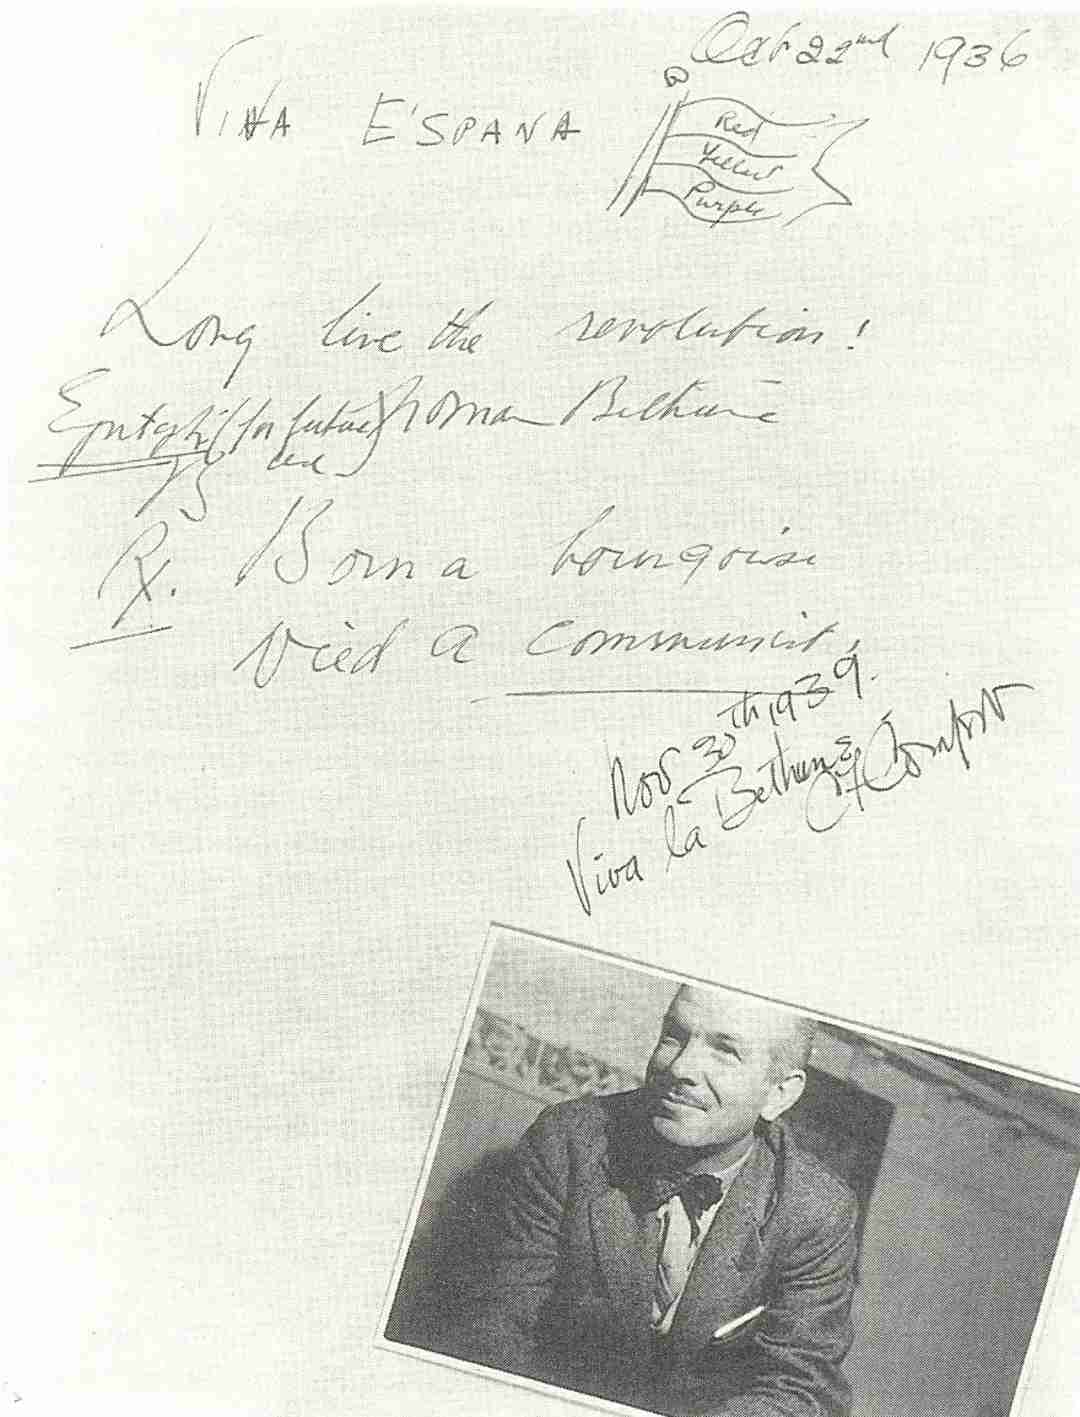 Oct 22nd 1936
VIVA E'SPANA
Red
Yellow
Purple
Long live the revolution!
Epitaph (for future) Norman Bethune
use
Rx. Born a bourgoise
Died a communist.
Nov 30th 1939.
Viva la Bethune
Comfort